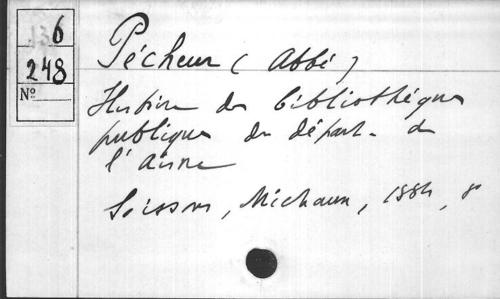 6
248
Nº
Pécheur (Abbé)
Histoire des bibliothèques
publiques du départ. de
l'Aisne
Soissons, Michaux, 1884, 8º